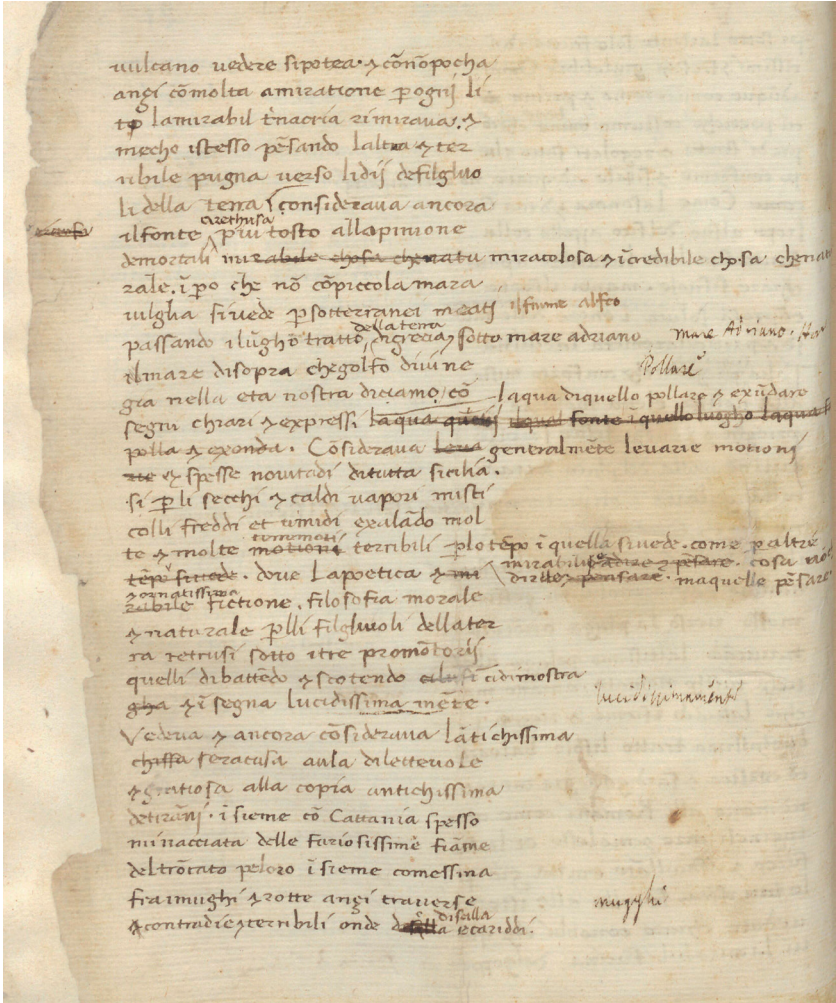 vulcano vedere sipotea · & cō nō pocha
angi cō molta amiratione ꝑ ognij li
to lamirabil t̄nacria rimirava, &
mecho istesso pēsando laltra & ter
ribile pugna verso lidij defilgluo
li della terra / considerava ancora
ilfonte arethusa piu tosto allopinione
demortali mirabile chosa chenatu miracolosa & īcredibile cho·sa chenatu
rale · ī ꝑo che nō cō piccola mara
viglia si vede ꝑ sotterranei meatj ilfiume alfeo
passando ilūgho tratto della terra di grecia & sotto mare adriano mare Adriano ·
ilmare disopra chegolfo divine Pollare
gia nella eta nostra diciamo / cō laqua diquello pollare & exūdare
segni chiari & expressi · laqua fonte ī quello luogho laqua
polla & exonda · Cōsiderava generalmēte levarie motionj
& spesse novitadi ditutta sicilia ·
si ꝑ li secchi & caldi vapori misti
colli freddi et umidi exalādo mol
te & molte motioni terribili ꝑ lo tēpo ī quella si vede · come ꝑ altre
tēpo sivede · dove lapoetica & mirabili cosa
dirlle maquelle pēsare
& ornatissima fictione, filosofia morale
& naturale ꝑ lli filgluoli dellater
ra retrusi sotto itre promōtorij
quelli dibattēdo & scotendo cidimostra
gha & īsegna lucidissima mēte · lucidissimamente
Vedeva & ancora cōsiderava lātichissima
seracusa aula dilettevole
& gratiosa alla copia antichissima
detirānj · īsieme cō Cattania spesso
minacciata delle furiosissime fiāme
deltrōcato peloro īsieme comessina
fraimughi & rotte angi traverse mugghi
& contradie & terribili onde disilla ecariddi ·